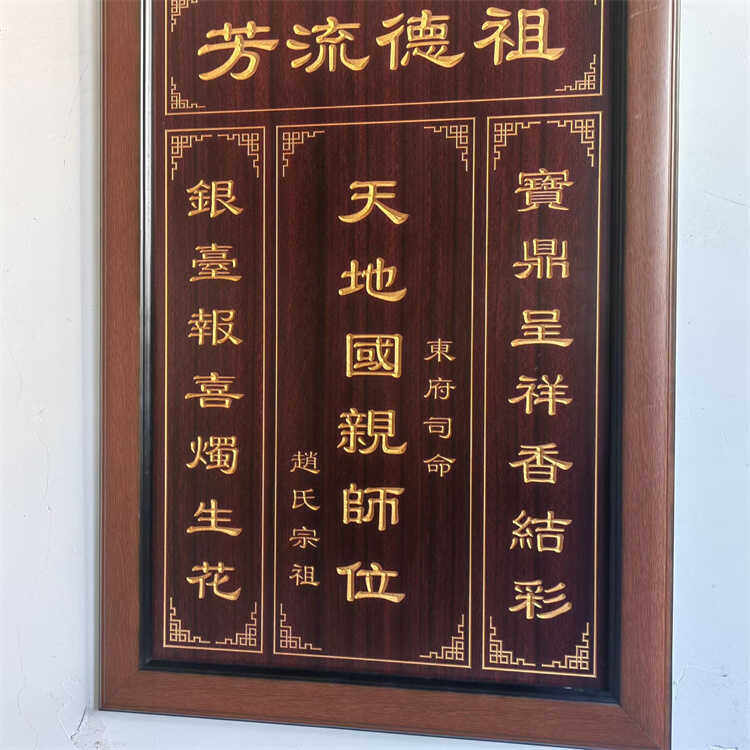 祖德流芳
寶鼎呈祥香結彩
東府司命
天地國親師位
趙氏宗祖
銀臺報喜燭生花